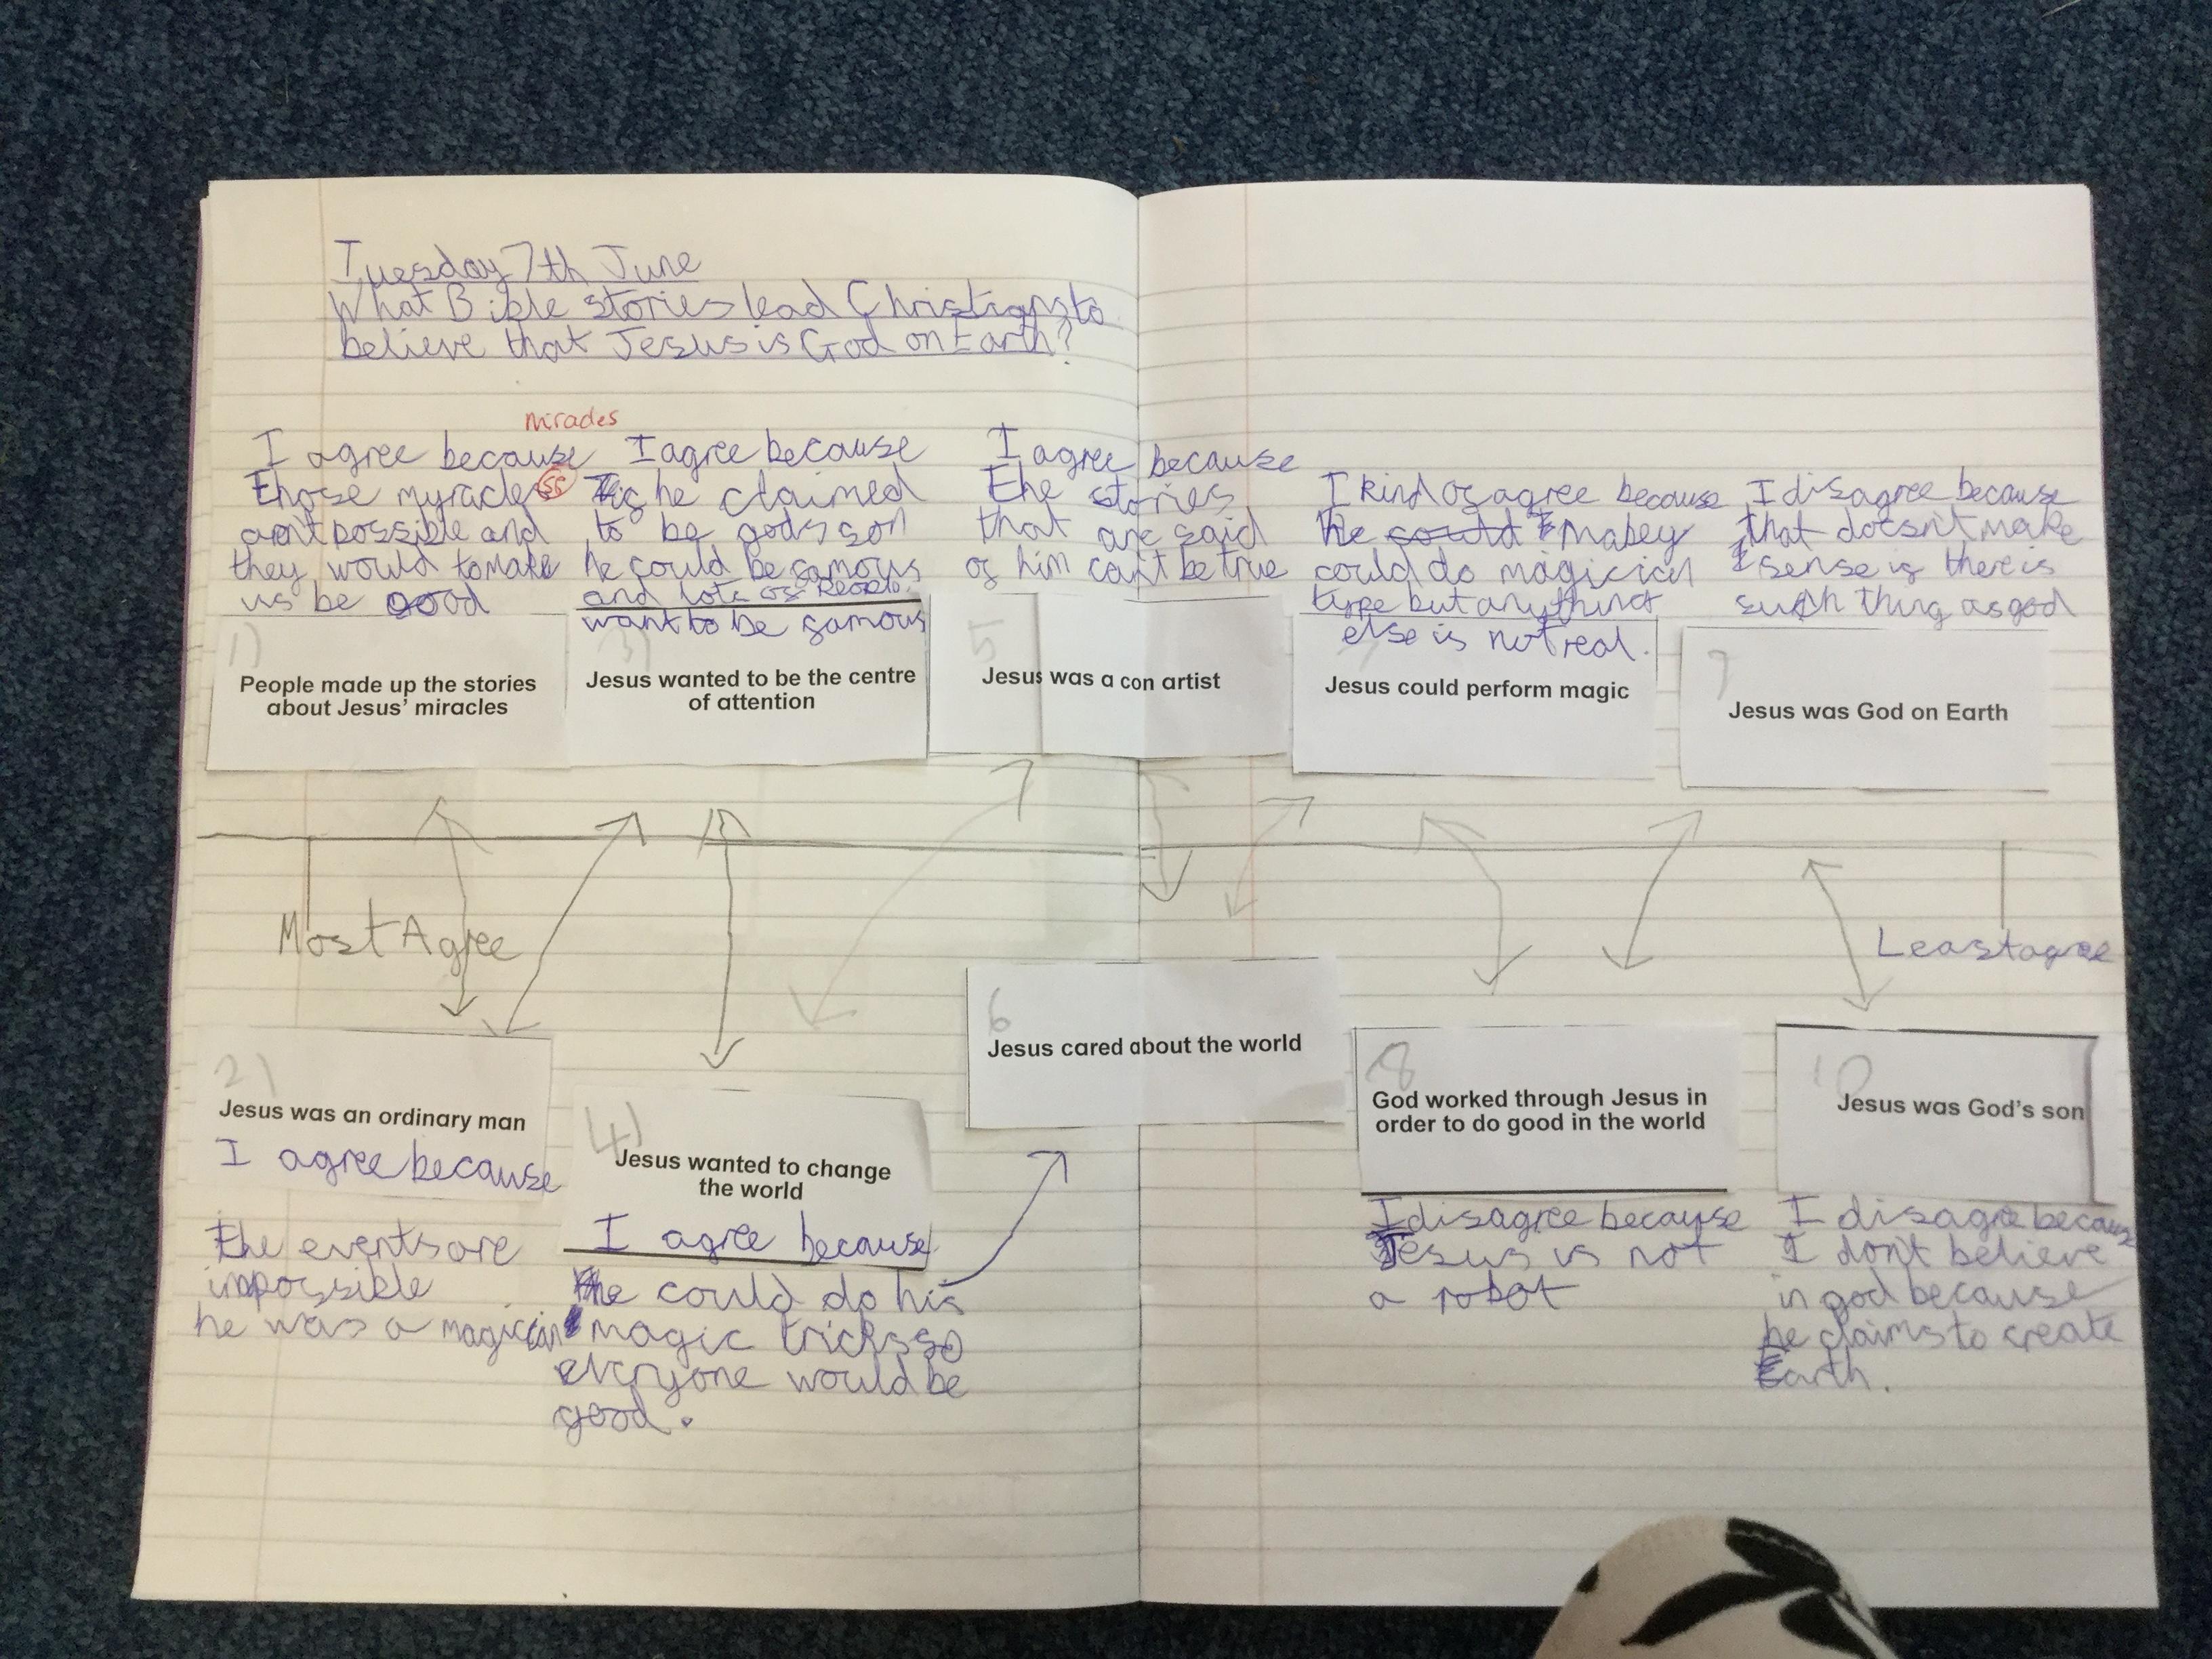 Tuesday 7th June
What Bible stories lead Christians to
believe that Jesus is God on Earth?
miracles
I agree because
those myracles
SG
arn't possible and
they would to make
us be good
1)
People made up the stories
about Jesus' miracles
I agree because
if he claimed
to be god's son
he could be famous
and lots of people
want to be famous
3)
Jesus wanted to be the centre
of attention
I agree because
the stories
that are said
of him can't be true
5
Jesus was a con artist
I kind of agree because
he could mabey
could do magicicn
type but anything
else is not real.
7
Jesus could perform magic
I disagree because
that doesn't make
sense if there is
such thing as god
9
Jesus was God on Earth
Most Agree
Least agree
2)
Jesus was an ordinary man
I agree because
the events are
impossible
he was a magician
4)
Jesus wanted to change
the world
I agree because
he could do his
magic tricks so
everyone would be
good.
6
Jesus cared about the world
8
God worked through Jesus in
order to do good in the world
I disagree because
Jesus is not
a robot
10
Jesus was God's son
I disagree because
I don't believe
in god because
he claims to create
Earth.